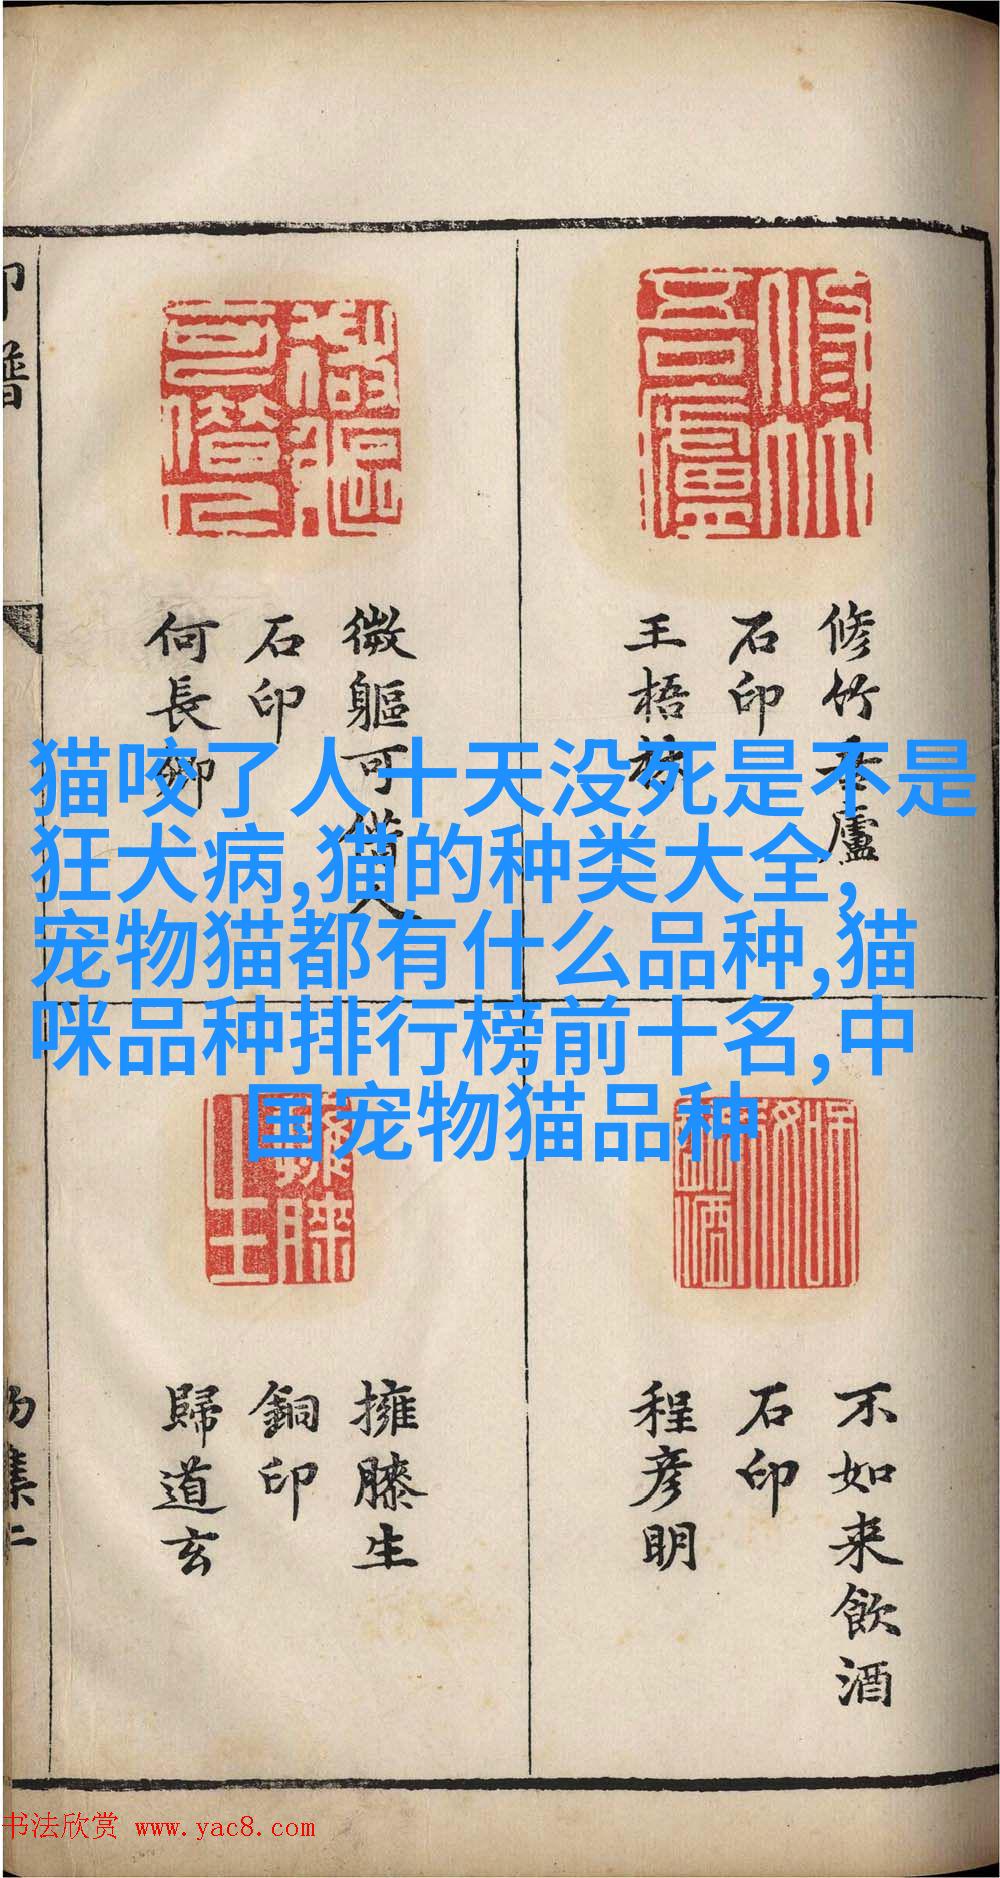 修竹吾廬
石印
王梧林
微軀可借人
石印
何長卿
猫咬了人十天没死是不是
狂犬病,猫的种类大全,
宠物猫都有什么品种,猫
咪品种排行榜前十名,中
国宠物猫品种
不如来飲酒
石印
程彦明
擁膝生
銅印
歸道玄
印譜
书法欣赏 www.yac8.com